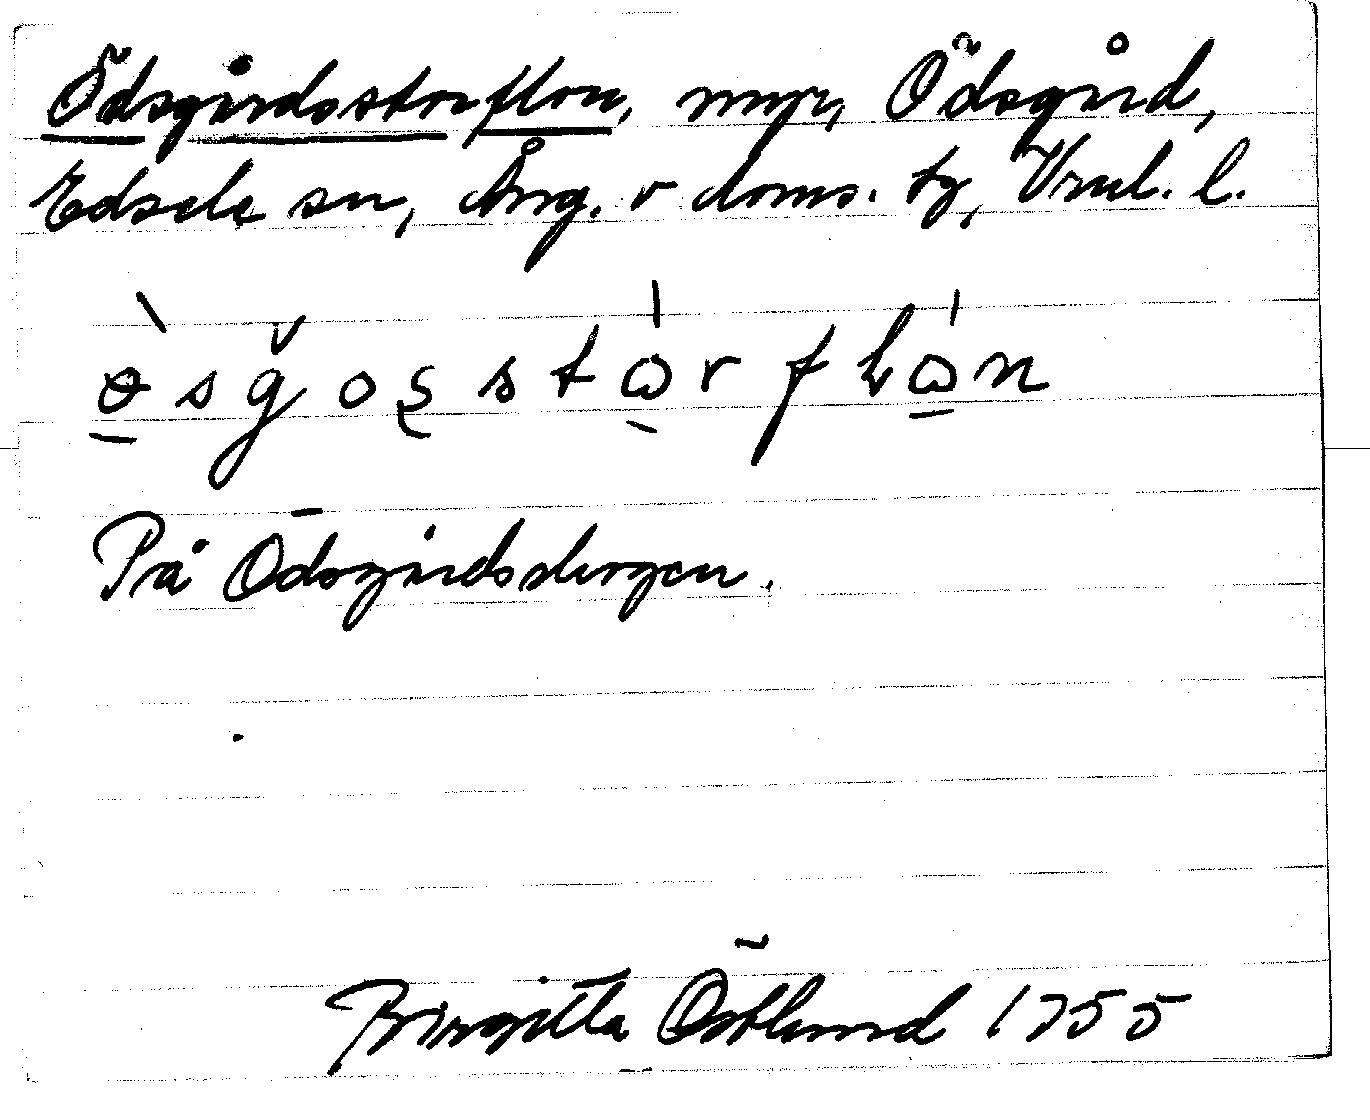 Ödsgårdsstorflon, myr, Ödsgård,
Edsele sn, Ång. v doms. tg, Vnl. l.
På Ödsgårdsbergen.
Birgitta Östlund 1955